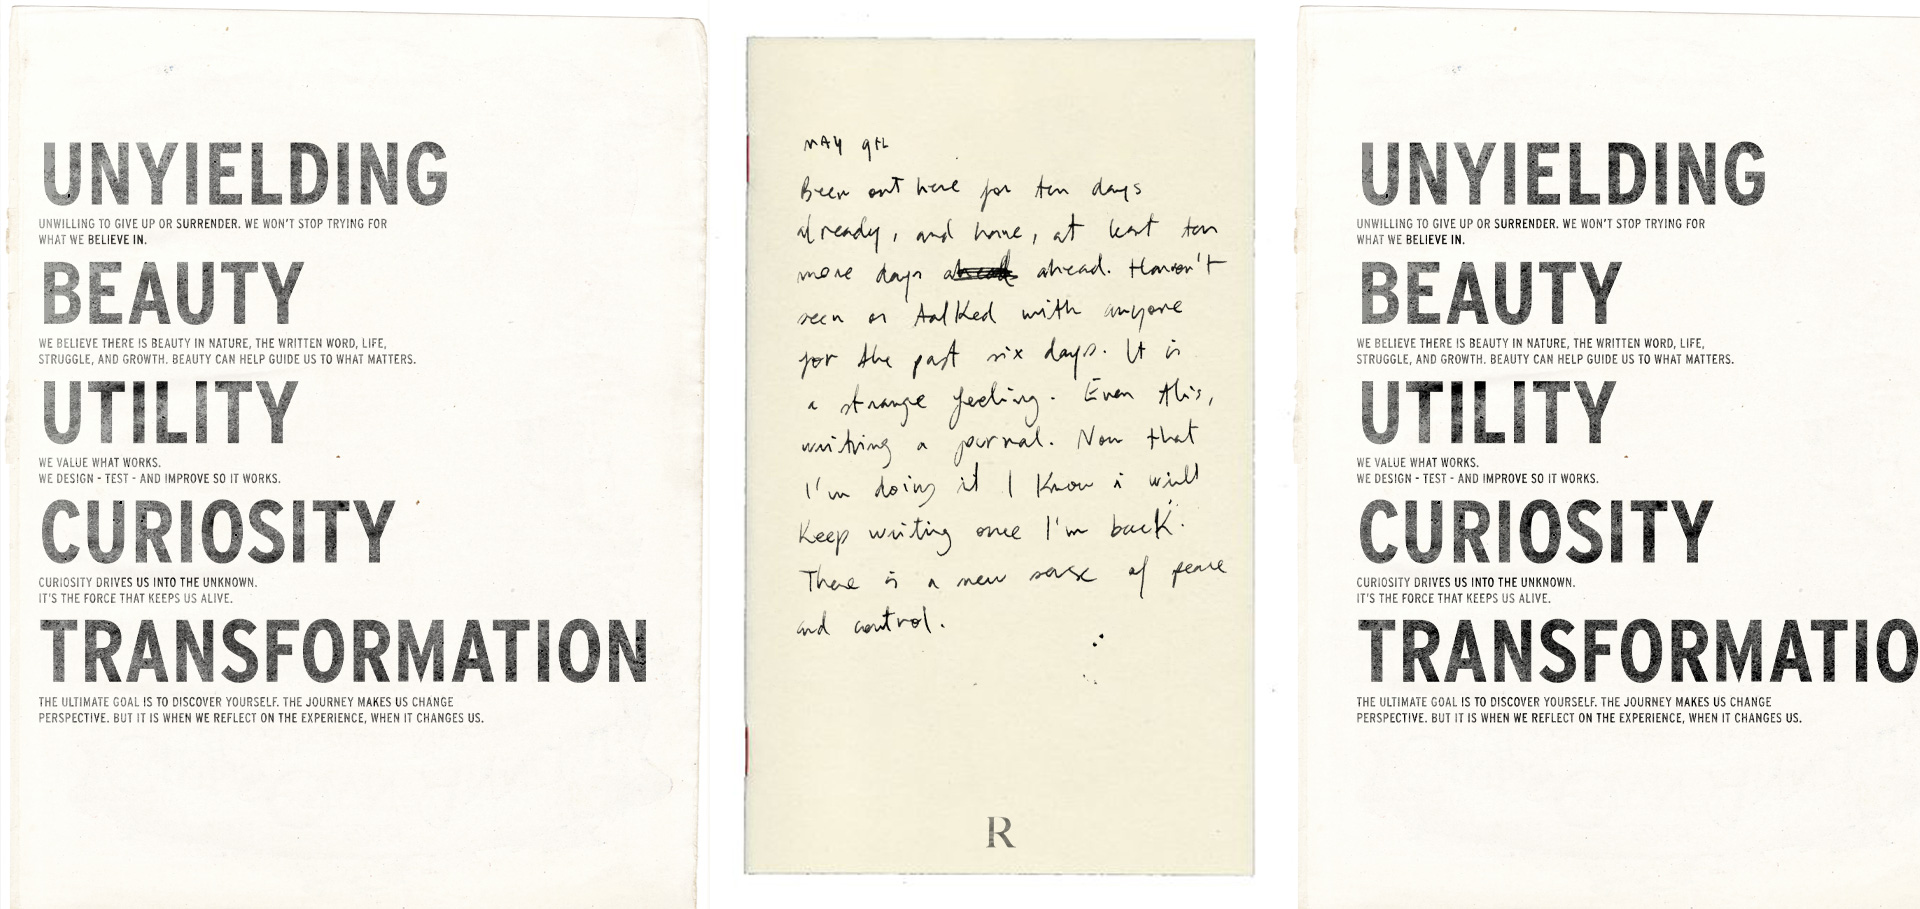 UNYIELDING
UNWILLING TO GIVE UP OR SURRENDER. WE WON'T STOP TRYING FOR
WHAT WE BELIEVE IN.
BEAUTY
WE BELIEVE THERE IS BEAUTY IN NATURE, THE WRITTEN WORD, LIFE,
STRUGGLE, AND GROWTH. BEAUTY CAN HELP GUIDE US TO WHAT MATTERS.
UTILITY
WE VALUE WHAT WORKS.
WE DESIGN - TEST - AND IMPROVE SO IT WORKS.
CURIOSITY
CURIOSITY DRIVES US INTO THE UNKNOWN.
IT'S THE FORCE THAT KEEPS US ALIVE.
TRANSFORMATION
THE ULTIMATE GOAL IS TO DISCOVER YOURSELF. THE JOURNEY MAKES US CHANGE
PERSPECTIVE. BUT IT IS WHEN WE REFLECT ON THE EXPERIENCE, WHEN IT CHANGES US.
MAY 9th
Been out here for ten days
already, and have, at least ten
more days ahead. Haven't
seen or talked with anyone
for the past six days. It is
a strange feeling. Even this,
writing a journal. Now that
I'm doing it I know i will
Keep writing once I'm back.
There is a new sense of peace
and control.
R
UNYIELDING
UNWILLING TO GIVE UP OR SURRENDER. WE WON'T STOP TRYING FOR
WHAT WE BELIEVE IN.
BEAUTY
WE BELIEVE THERE IS BEAUTY IN NATURE, THE WRITTEN WORD, LIFE,
STRUGGLE, AND GROWTH. BEAUTY CAN HELP GUIDE US TO WHAT MATTERS.
UTILITY
WE VALUE WHAT WORKS.
WE DESIGN - TEST - AND IMPROVE SO IT WORKS.
CURIOSITY
CURIOSITY DRIVES US INTO THE UNKNOWN.
IT'S THE FORCE THAT KEEPS US ALIVE.
TRANSFORMATIO
THE ULTIMATE GOAL IS TO DISCOVER YOURSELF. THE JOURNEY MAKES US CHANGE
PERSPECTIVE. BUT IT IS WHEN WE REFLECT ON THE EXPERIENCE, WHEN IT CHANGES US.